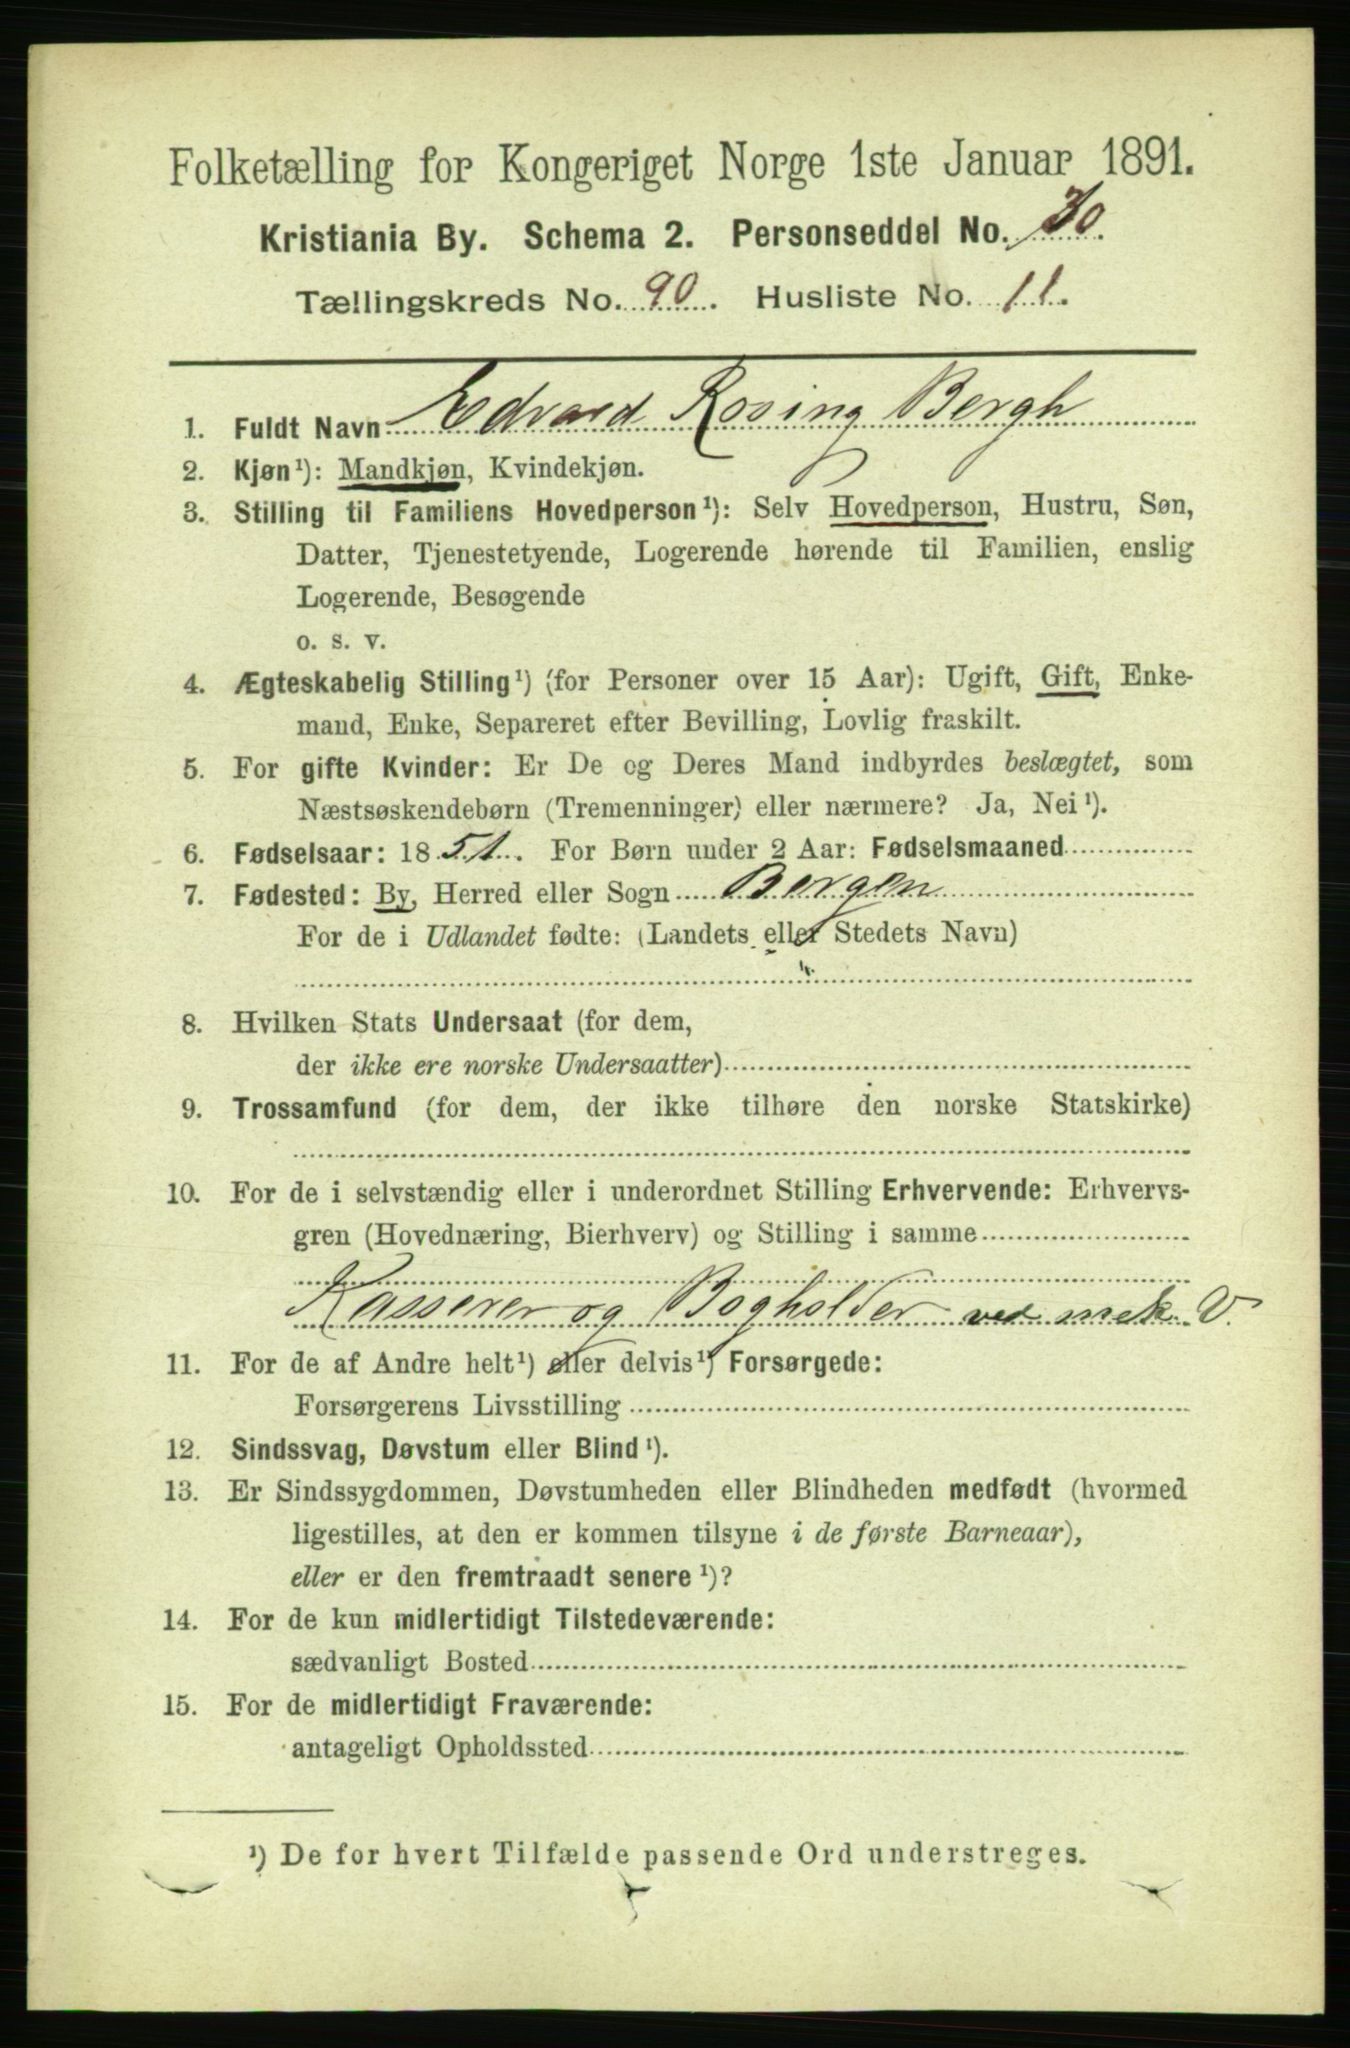 Folketælling for Kongeriget Norge 1ste Januar 1891.
Kristiania By. Schema 2. Personseddel No. 30.
Tællingskreds No. 90. Husliste No. 11.
1. Fuldt Navn Edvard Rosing Bergh
2. Kjøn¹): Mandkjøn, Kvindekjøn.
3. Stilling til Familiens Hovedperson¹): Selv Hovedperson, Hustru, Søn,
Datter, Tjenestetyende, Logerende hørende til Familien, enslig
Logerende, Besøgende
o. s. v.
4. Ægteskabelig Stilling¹) (for Personer over 15 Aar): Ugift, Gift, Enke-
mand, Enke, Separeret efter Bevilling, Lovlig fraskilt.
5. For gifte Kvinder: Er De og Deres Mand indbyrdes beslægtet, som
Næstsøskendebørn (Tremenninger) eller nærmere? Ja, Nei¹).
6. Fødselsaar: 1851. For Børn under 2 Aar: Fødselsmaaned
7. Fødested: By, Herred eller Sogn Bergen
For de i Udlandet fødte: (Landets eller Stedets Navn)
8. Hvilken Stats Undersaat (for dem,
der ikke ere norske Undersaatter)
9. Trossamfund (for dem, der ikke tilhøre den norske Statskirke)
10. For de i selvstændig eller i underordnet Stilling Erhvervende: Erhvervs-
gren (Hovednæring, Bierhverv) og Stilling i samme
Kasserer og Bogholder ved mek. V.
11. For de af Andre helt¹) eller delvis¹) Forsørgede:
Forsørgerens Livsstilling
12. Sindssvag, Døvstum eller Blind¹).
13. Er Sindssygdommen, Døvstumheden eller Blindheden medfødt (hvormed
ligestilles, at den er kommen tilsyne i de første Barneaar),
eller er den fremtraadt senere¹)?
14. For de kun midlertidigt Tilstedeværende:
sædvanligt Bosted
15. For de midlertidigt Fraværende:
antageligt Opholdssted
¹) De for hvert Tilfælde passende Ord understreges.